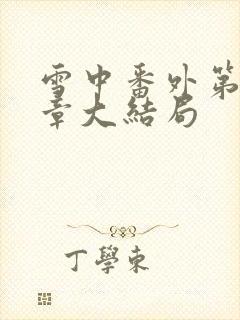 雪中番外第
章大結局
丁學東